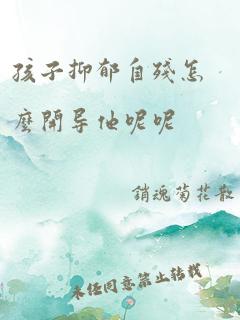 孩子抑郁自残怎
麽開导他呢呢
銷魂菊花散
未经同意禁止转载